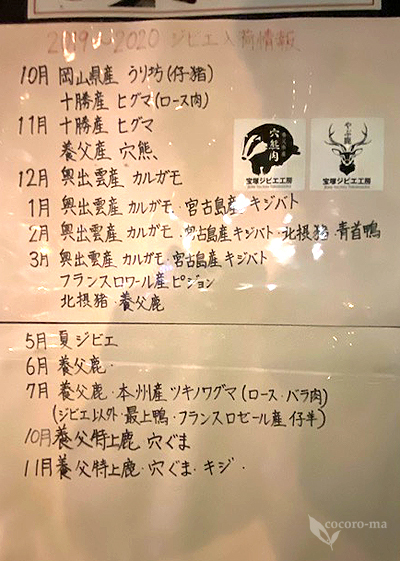 2019~2020 ジビエ入荷情報
10月 岡山県産 うり坊(仔猪)
十勝産 ヒグマ(ロース肉)
11月 十勝産 ヒグマ
養父産 穴熊、
12月 奥出雲産 カルガモ
1月 奥出雲産 カルガモ・宮古島産 キジバト
2月 奥出雲産 カルガモ・宮古島産 キジバト・北摂猪・青首鴨
3月 奥出雲産 カルガモ・宮古島産 キジバト
フランスロワール産 ピジョン
北摂猪・養父鹿
穴熊肉
宝塚ジビエ工房
やぶ鹿
宝塚ジビエ工房
5月 夏ジビエ
6月 養父鹿・
7月 養父鹿・本州産 ツキノワグマ(ロース・バラ肉)
(ジビエ以外・最上鴨・フランスロゼール産 仔羊)
10月 養父特上鹿 穴ぐま
11月 養父特上鹿・穴ぐま・キジ・
cocoro-ma